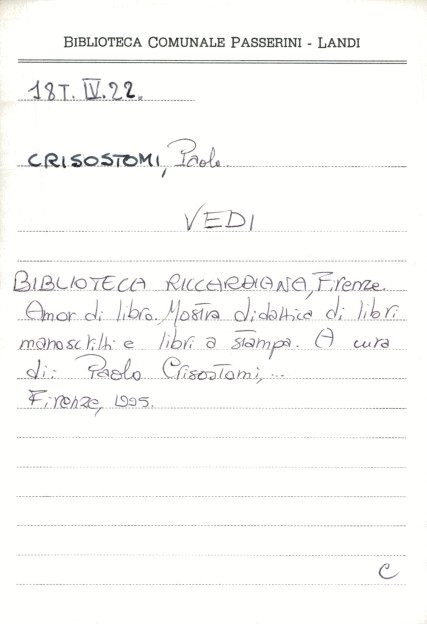 BIBLIOTECA COMUNALE PASSERINI - LANDI
18T. IV. 22.
CRISOSTOMI, Paolo.
VEDI
BIBLIOTECA RICCARDIANA, Firenze.
Amor di libro. Mostra didattica di libri
manoscritti e libri a stampa. A cura
di: Paolo Crisostomi, ...
Firenze, 1995.
C